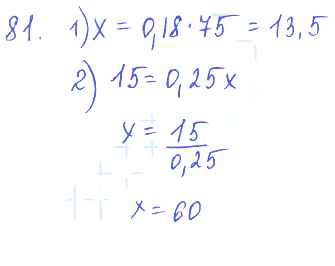 81. 1) x = 0,18 · 75 = 13,5
2) 15 = 0,25x
x = 15/0,25
x = 60